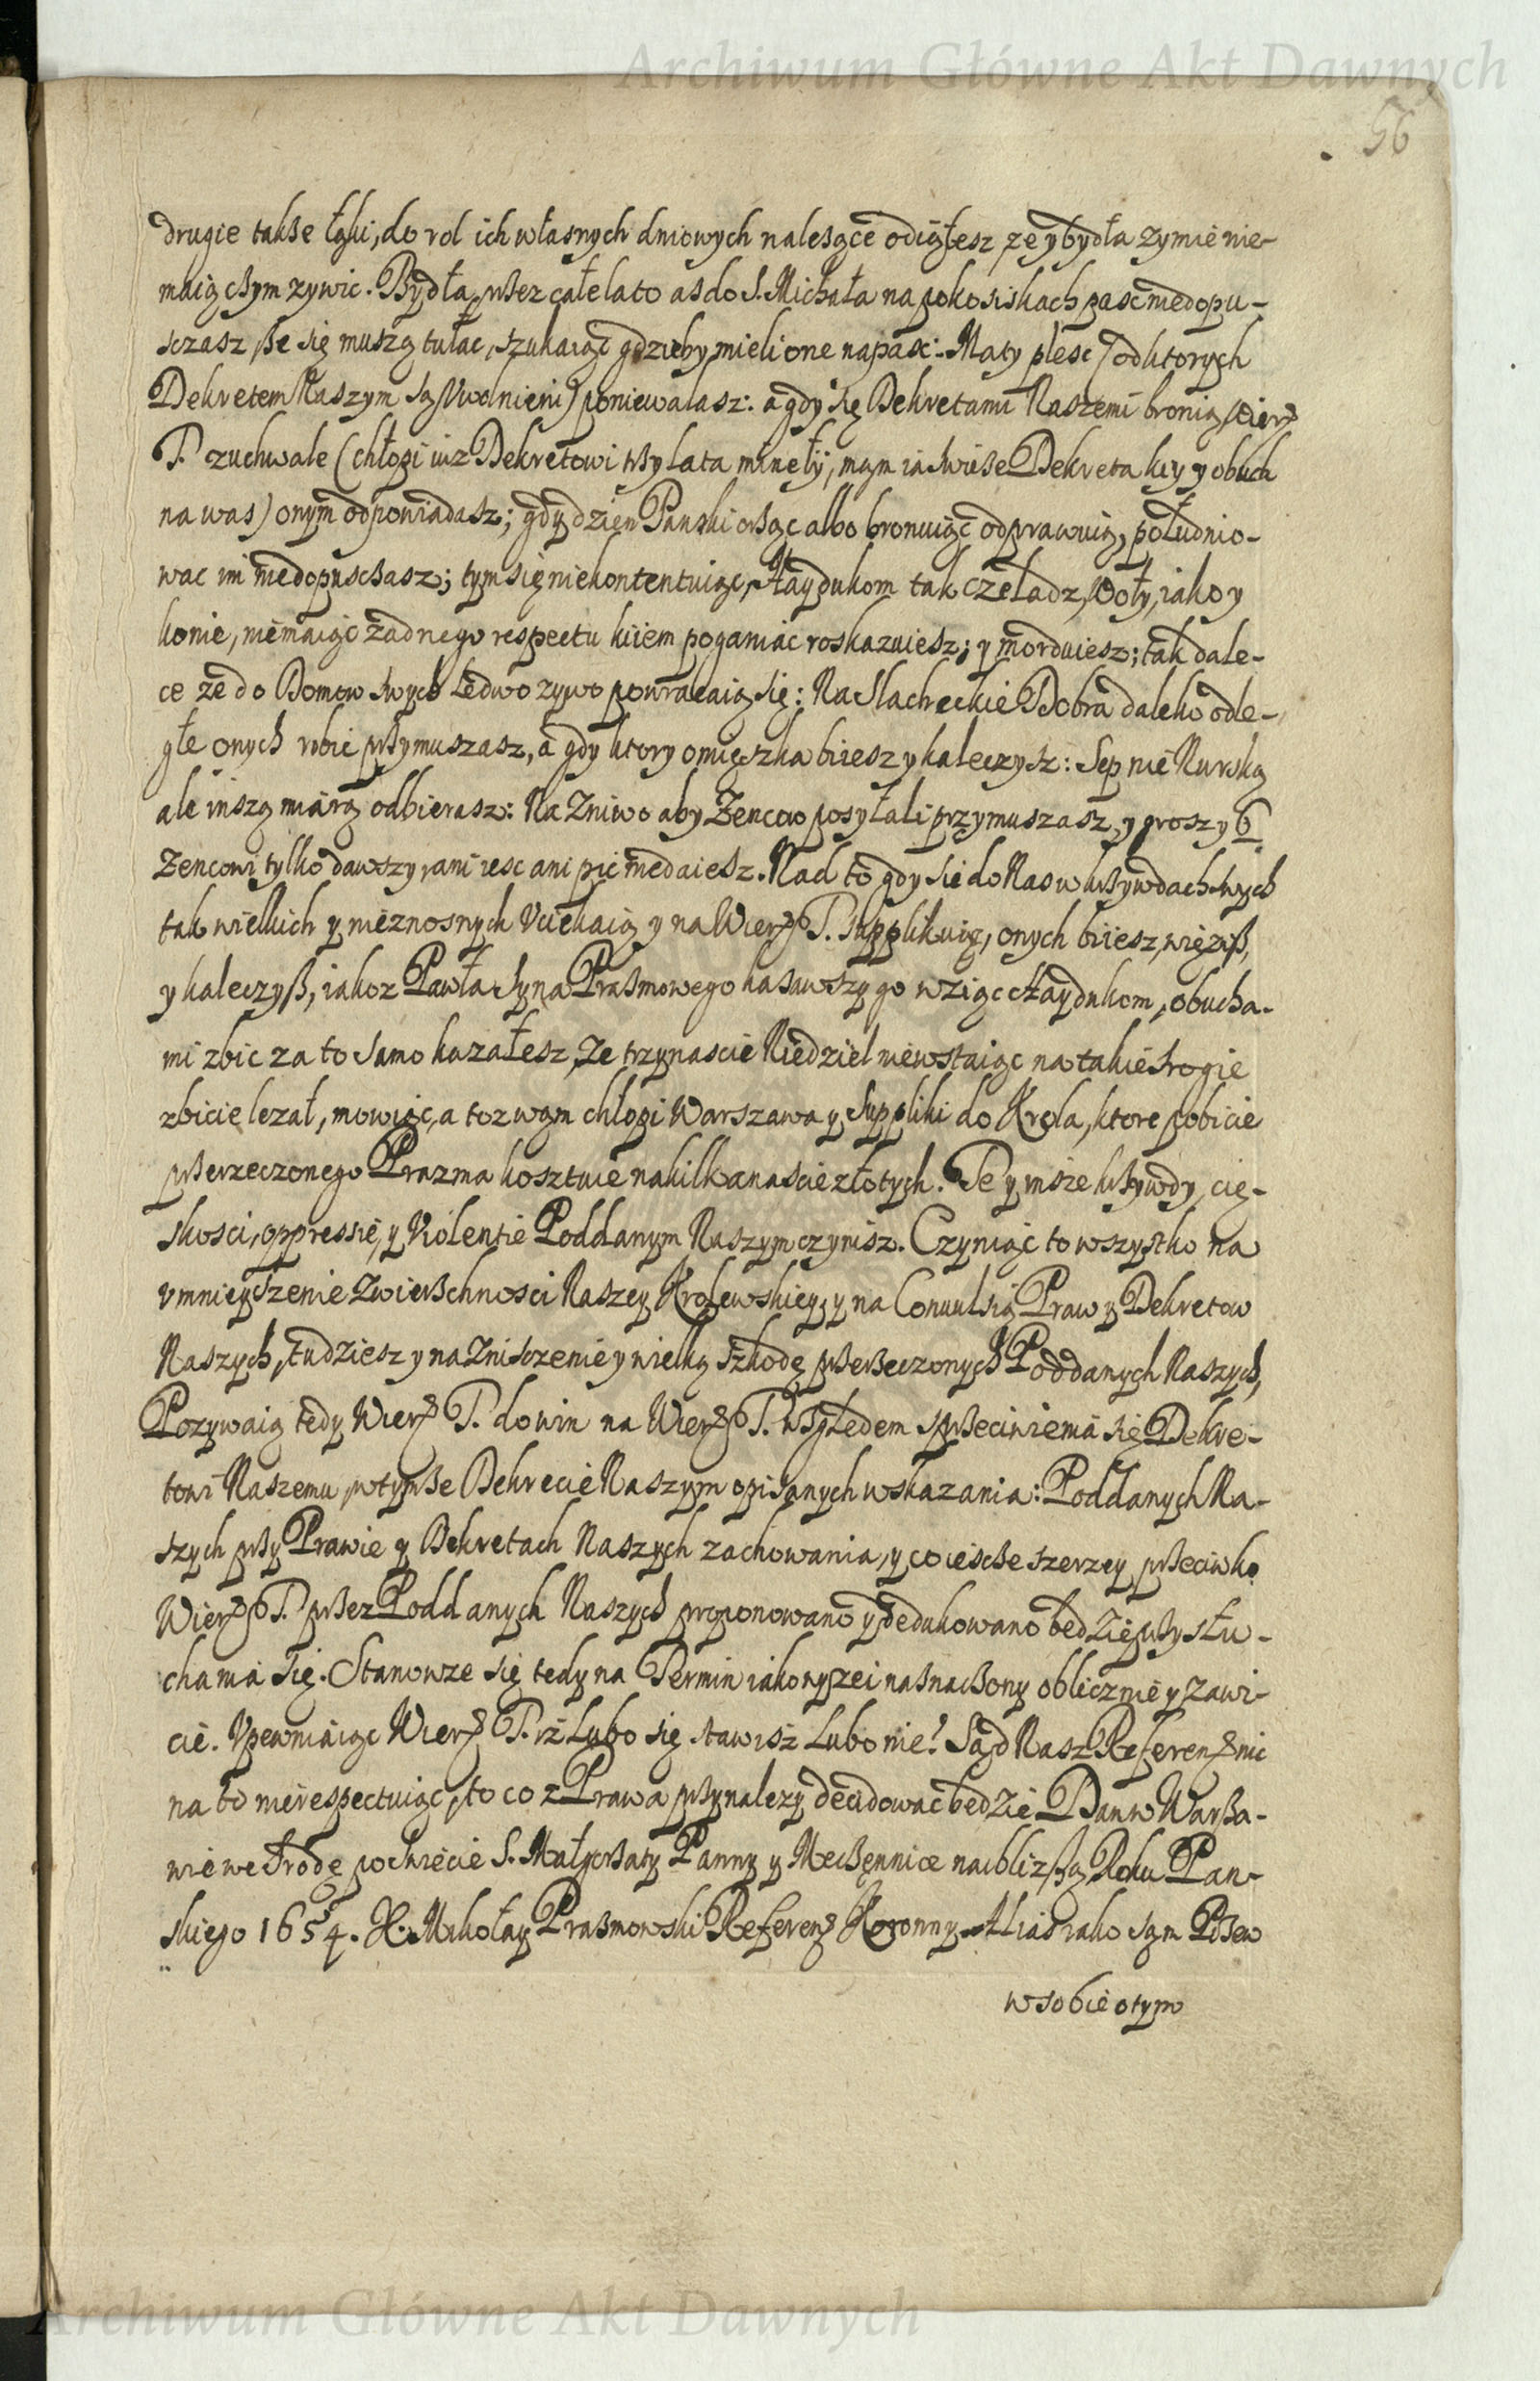 Archiwum Główne Akt Dawnych
56
drugie takße łąki, do rol ich własnych dniowych naleßące odiąłesz, ze y bydła zymie nie-
maią cßym zywic. Bydła pßez całe lato aß do S. Michała na pokosiskach pasc niedopu-
sczasz, ße się muszą tułac, szukaiąc gdzieby mieli one napasc: Maty plesc (od ktorych
Dekretem Naszym są Uwolnieni) poniewalasz: a gdy się Dekretami Naszemi bronią Wier?
T. zuchwale (chłopi iuz Dekretowi tßy lata minęły, mam ia swieße Dekreta kiy y obuch
na was) onym odpowiadasz; gdy dzien Panski orßąc albo bronuiąc odprawuią, południo-
wac im niedopuscßasz; tym się niekontentuiąc, Haydukom tak czeladz, Woły, iako y
konie, niemaiąc zadnego respectu kiiem poganiac roskazuiesz; y morduiesz; tak dale-
ce ze do Domow swych ledwo zywo powracaią się: Na Slacheckie Dobra daleko odle-
głe onych robic pßymuszasz, a gdy ktory omięszka biiesz y kaleczysz: Sep nie Kurską
ale inszą miarą odbierasz: Na Zniwo aby Zencow posyłali przymuszasz, y groszy 6
Zencowi tylko dawszy, ani iesc ani pic niedaiesz. Nad to gdy się do Nas w kßywdach swych
tak wielkich y nieznosnych Uciekaią y na Wier? T. supplikuią, onych biiesz, więziß,
y kaleczyß, iakoz Pawła syna Praßmowego kasawszy go wziąc Haydukom, obucha-
mi zbic za to samo kazałesz, Ze trzynascie Niedziel niewstaiąc na takie srogie
zbicie lezał, mowiąc, a toz wam chłopi Warszawa y Suppliki do Krola, ktore pobicie
pßerzeczonego Prazma kosztuie na kilkanascie złotych. Te y insze kßywdy, cię-
skosci, oppressie, y Violentie Poddanym Naszym czynisz. Czyniąc to wszystko na
umnieyszenie Zwierßchnosci Naszey Krolewskiey, y na Convulsią Praw y Dekretow
Naszych, tudziesz y na Zniszczenie y wielką szkodę pßerzeczonych Poddanych Naszych,
Pozywaią tedy Wier? T. do win na Wier? T. wßględem spßeciwienia się Dekre-
towi Naszemu, w tymße Dekrecie Naszym opisanych wskazania: Poddanych Na-
szych pßy Prawie y Dekretach Naszych zachowania, y co iescße szerzey pßeciwko
Wier? T. pßez Poddanych Naszych proponowano y dedukowano będzie pßysłu-
chania się. Stanowze się tedy na Termin iako wyzei naßnacßony oblicznie y zawi-
cie. Upewniaiąc Wier? T. iż Lubo się stawisz Lubo nie! Sąd Nasz Referen? nic
na to nierespectuiąc, to co z Prawa pßynalezy decidowac będzie. Dan w Warßa-
wie we Srodę po swięcie S. Małgorßaty Panny y Męcßennice naiblizßą Roku Pan-
skiego 1654. X. Mikołay Praßmowski Referen? Koronny. Alias iako sam Pozew
w sobie o tym
Archiwum Główne Akt Dawnych